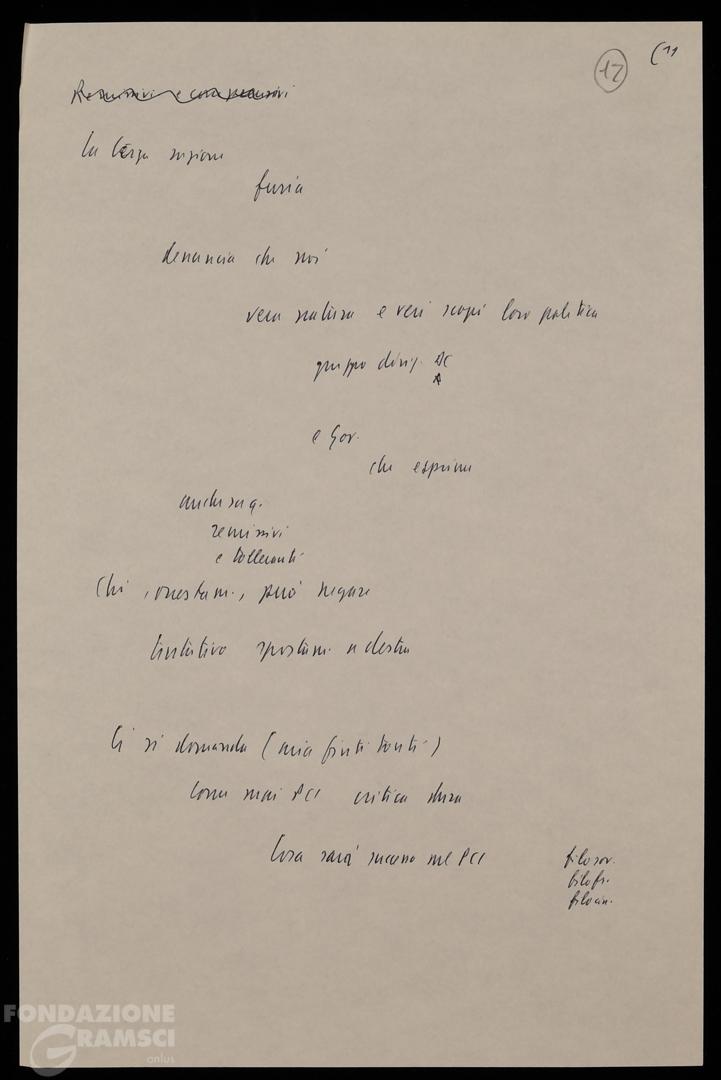 12
Remissivi e comprensivi
La terza ragione
furia
denuncia che noi
vera natura e veri scopi loro politica
gruppo dirig. DC
e Gov.
che esprime
anche se q.
remissivi
e tolleranti
Chi, onestam., può negare
tentativo spostam. a destra
Ci si domanda (aria finti tonti)
Come mai PCI critica dura
Cosa sarà successo nel PCI
filosov.
filofr.
filocin.
FONDAZIONE
GRAMSCI
onlus